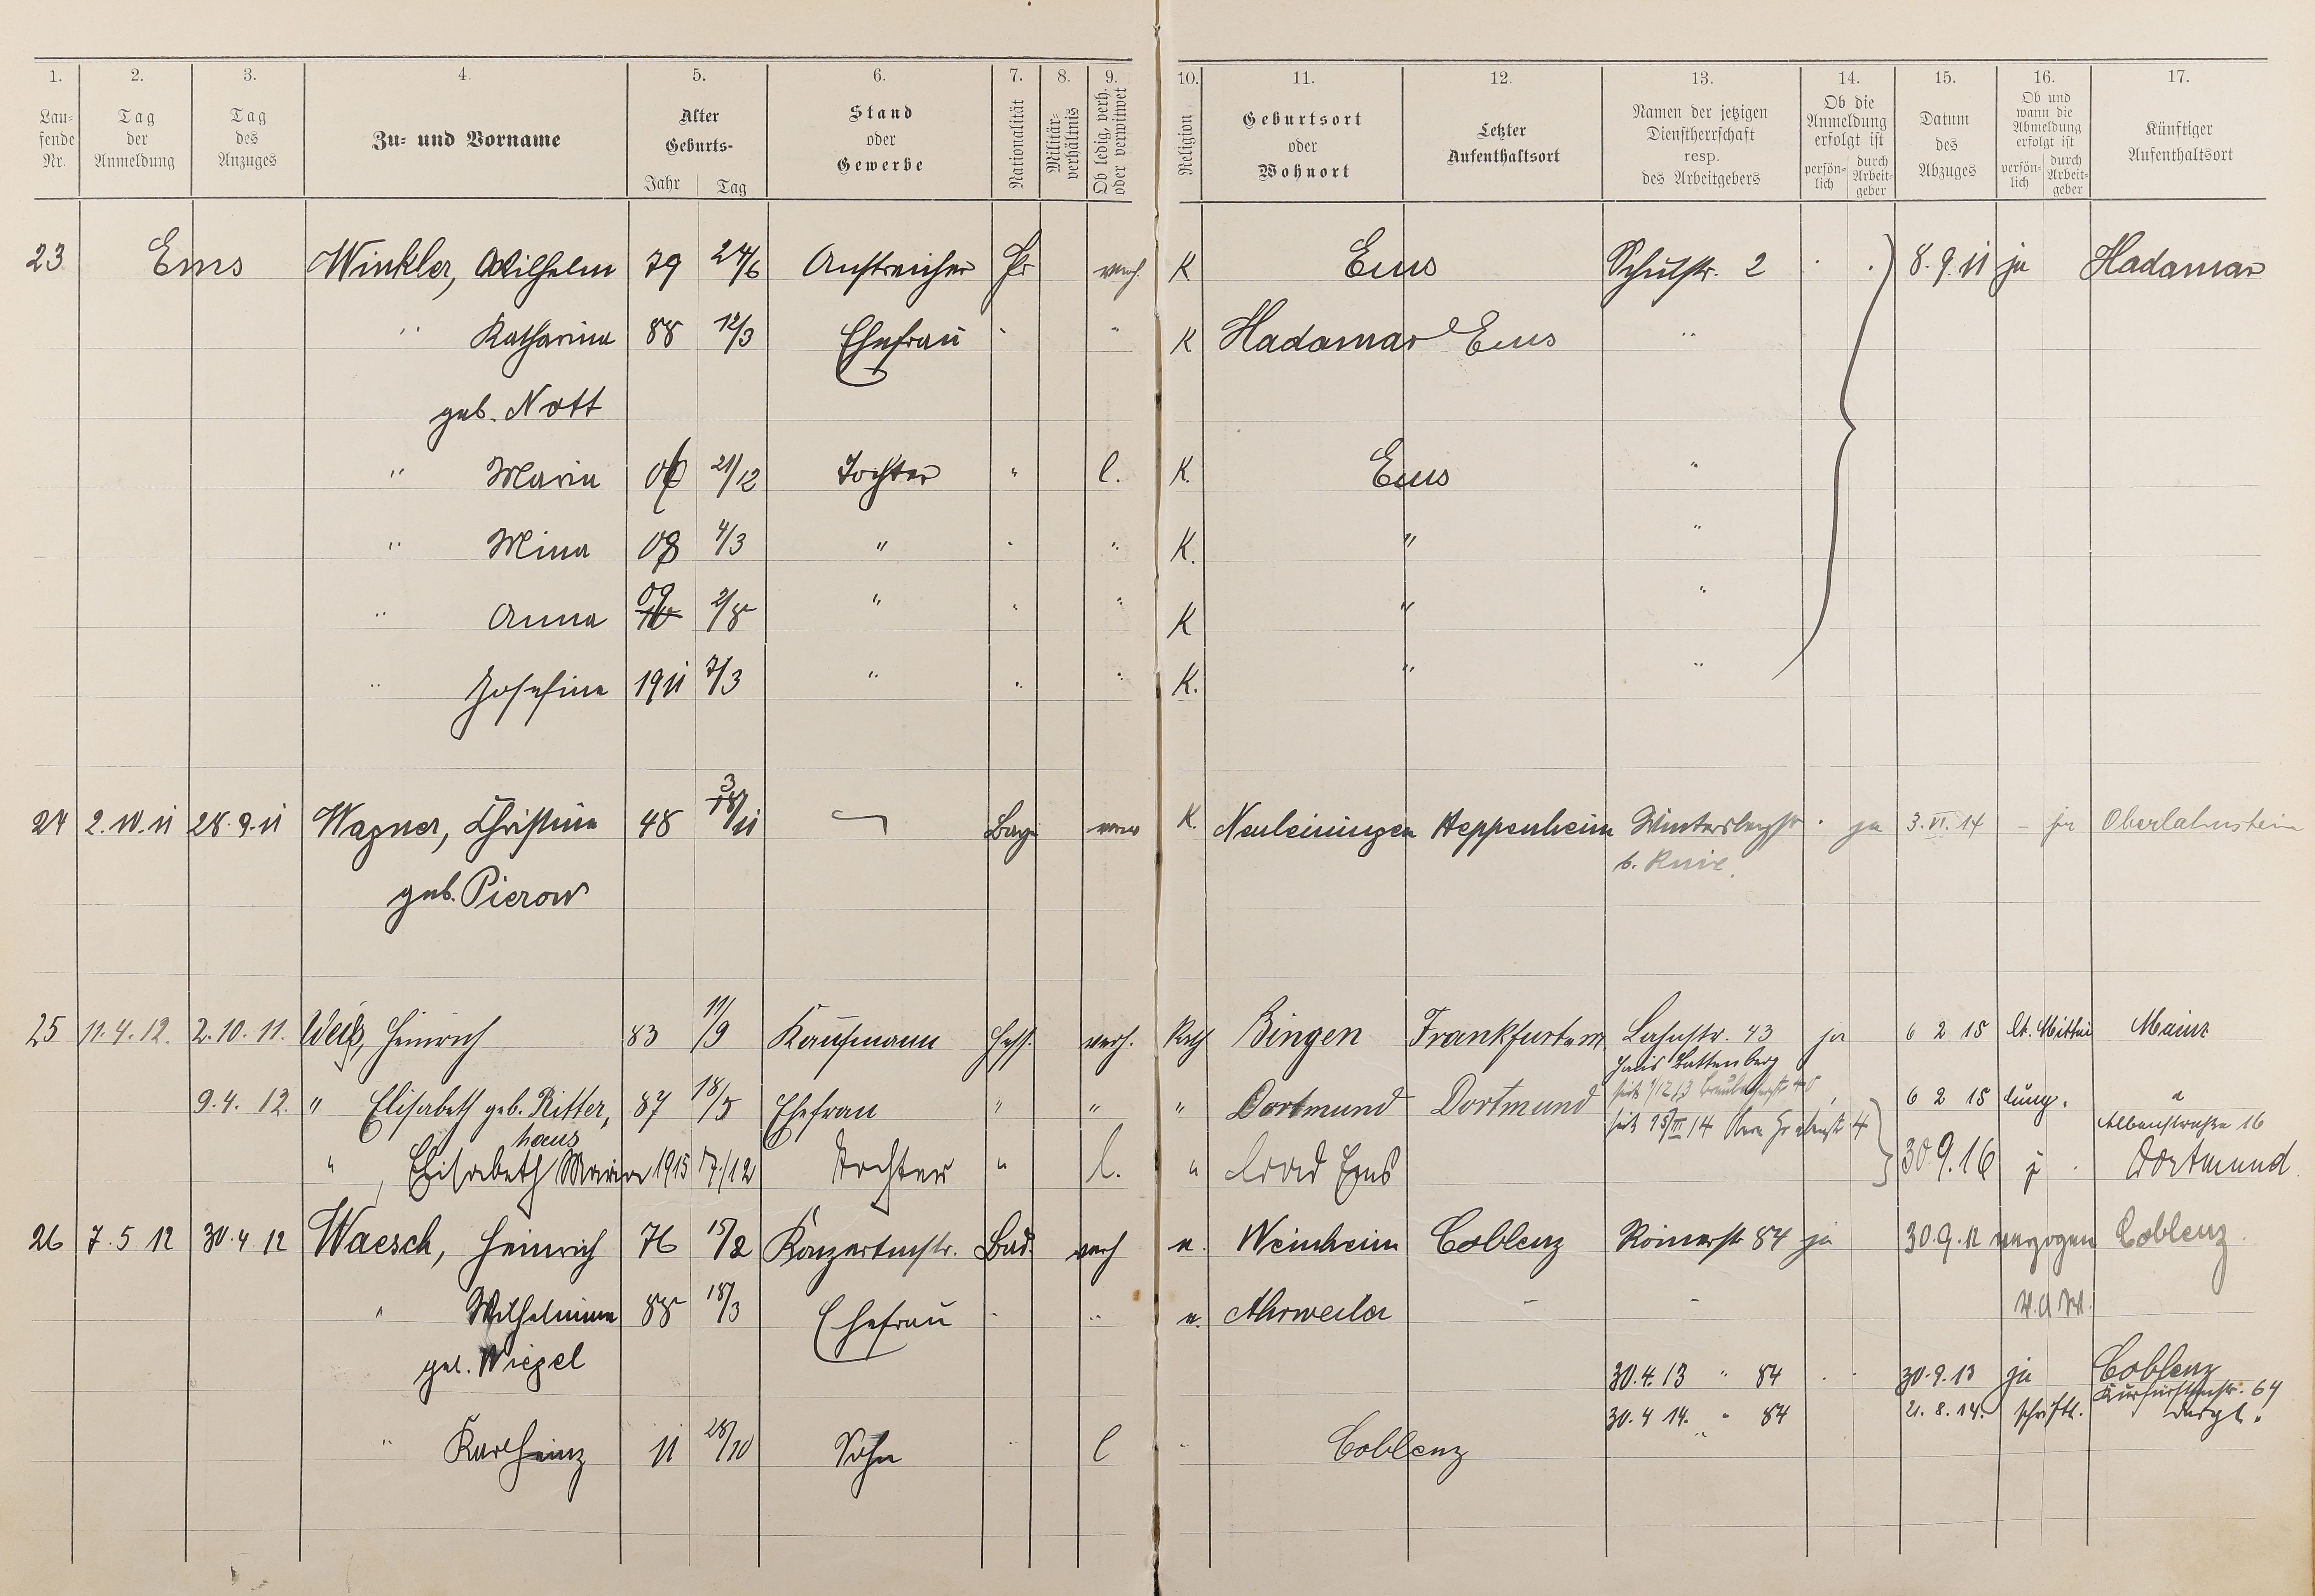 1. 2. 3. 4. 5. 6. 7. 8. 9. 10. 11. 12. 13. 14. 15. 16. 17.
Lau-
fende
Nr.
Tag
der
Anmeldung
Tag
des
Anzuges
Zu- und Vorname
Alter
Geburts-
Jahr Tag
Stand
oder
Gewerbe
Nationalität
Militär-
verhältnis
Ob ledig, verh.
oder verwitwet
Religion
Geburtsort
oder
Wohnort
Letzter
Aufenthaltsort
Namen der jetzigen
Dienstherrschaft
resp.
des Arbeitgebers
Ob die
Anmeldung
erfolgt ist
persön-
lich
durch
Arbeit-
geber
Datum
des
Abzuges
Ob und
wann die
Abmeldung
erfolgt ist
persön-
lich
durch
Arbeit-
geber
Künftiger
Aufenthaltsort
23 Ems Winkler, Wilhelm 79 24/6 Anstreicher Pr verh. K Ems Schulstr. 2 8.9.11 ja Hadamar
" Katharina 88 12/3 Ehefrau " " K Hadamar Ems "
geb. Nott
" Maria 21/12 Tochter " l. K. Ems "
" Mina 08 4/3 " " " K. " "
" Anna 09 2/8 " " " K " "
" Josefine 1911 7/3 " " " K. " "
24 2.10.11 28.9.11 Wagner, Christine 48 3/11 Bay. verw K. Neuleiningen Heppenheim Wintersbergstr ja 3.VI.14 - ja Oberlahnstein
geb. Pierow
25 11.4.12. 2.10.11. Weiß, Heinrich 83 11/9 Kaufmann Hess. verh. Kath Bingen Frankfurt a.M. Lahnstr. 43 ja 6 2 15 lt. Mittei Mainz
Haus Battenberg
9.4.12. " Elisabeth geb. Ritter, 87 18/5 Ehefrau " " " Dortmund Dortmund 6 2 15 lung. "
haus
Albenstraße 16
" Elisabeth Maria 1915 17/12 Tochter " l. " Bad Ems 30.9.16 j. Dortmund
26 7.5 12 30.4 12 Waesch, Heinrich 76 15/2 Konzertmstr. Bad. verh e. Weinheim Coblenz Römerstr 84 ja 30.9.12 verzogen Coblenz.
" Wilhelmine 88 18/3 Ehefrau " " e. Ahrweiler - -
geb. Wiegel
30.4.13 " 84 30.9.13 ja Coblenz
Kurfürstenstr. 64
30.4 14. " 84 21.8.14. schriftl. desgl.
" Karl Heinz 11 28/10 Sohn " l " Coblenz